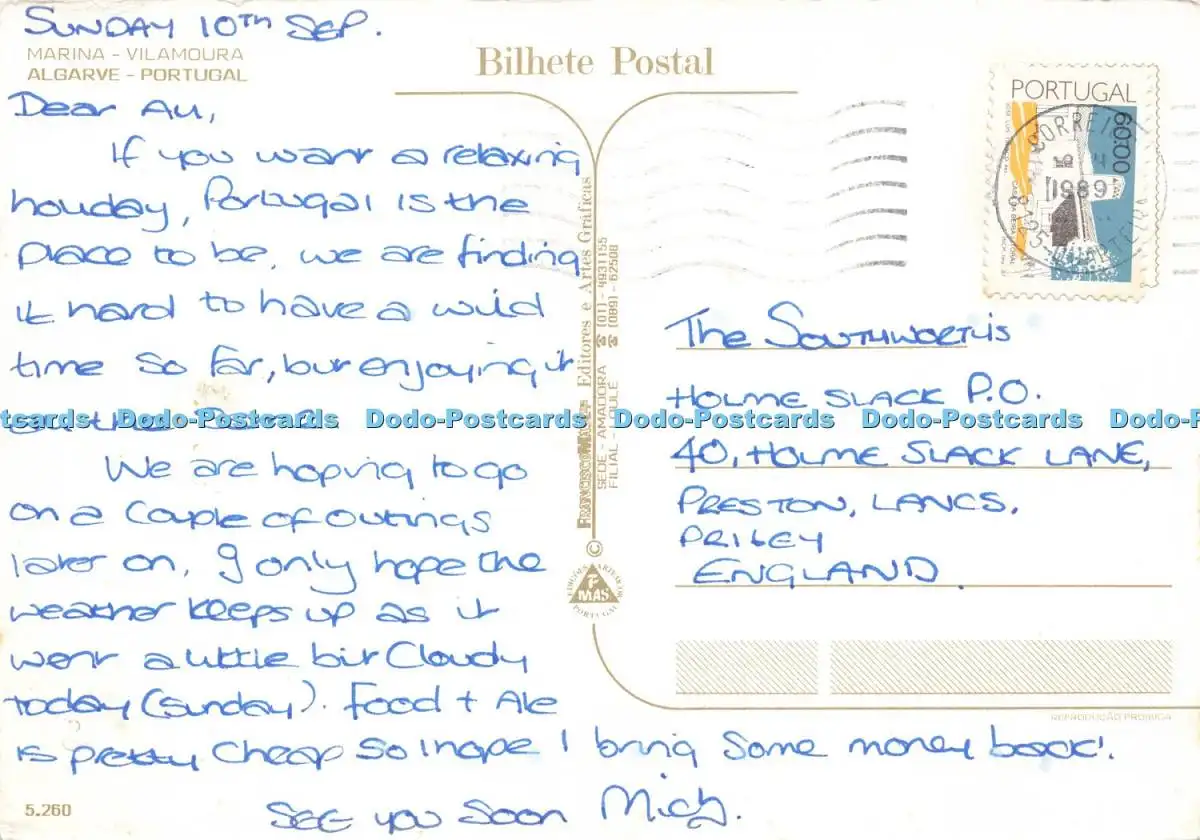 SUNDAY 10TH SEP.
MARINA - VILAMOURA
ALGARVE - PORTUGAL
Dear All,
If you want a relaxing
holiday, Portugal is the
place to be, we are finding
it hard to have a wild
time so far, but enjoying it
all the same.
We are hoping to go
on a couple of outings
later on. I only hope the
weather keeps up as it
went a little bit cloudy
today (Sunday). Food + Ale
is pretty cheap so I hope I bring some money back!
SEE YOU SOON
5.260
Bilhete Postal
FRANCISCO MAS, Editores e Artes Gráficas
SEDE - AMADORA ☎ (01) - 4931155
FILIAL - LOULÉ ☎ (089) - 62508
©
F MAS
PORTUGAL
PORTUGAL
60.00
CORREIOS
1989
8125 QUARTEIRA
The Southworth's
HOLME SLACK P.O.
40, HOLME SLACK LANE,
PRESTON, LANCS.
PR1 6EY
ENGLAND.
REPRODUÇÃO PROIBIDA
Dodo-Postcards Dodo-Postcards Dodo-Postcards Dodo-Postcards